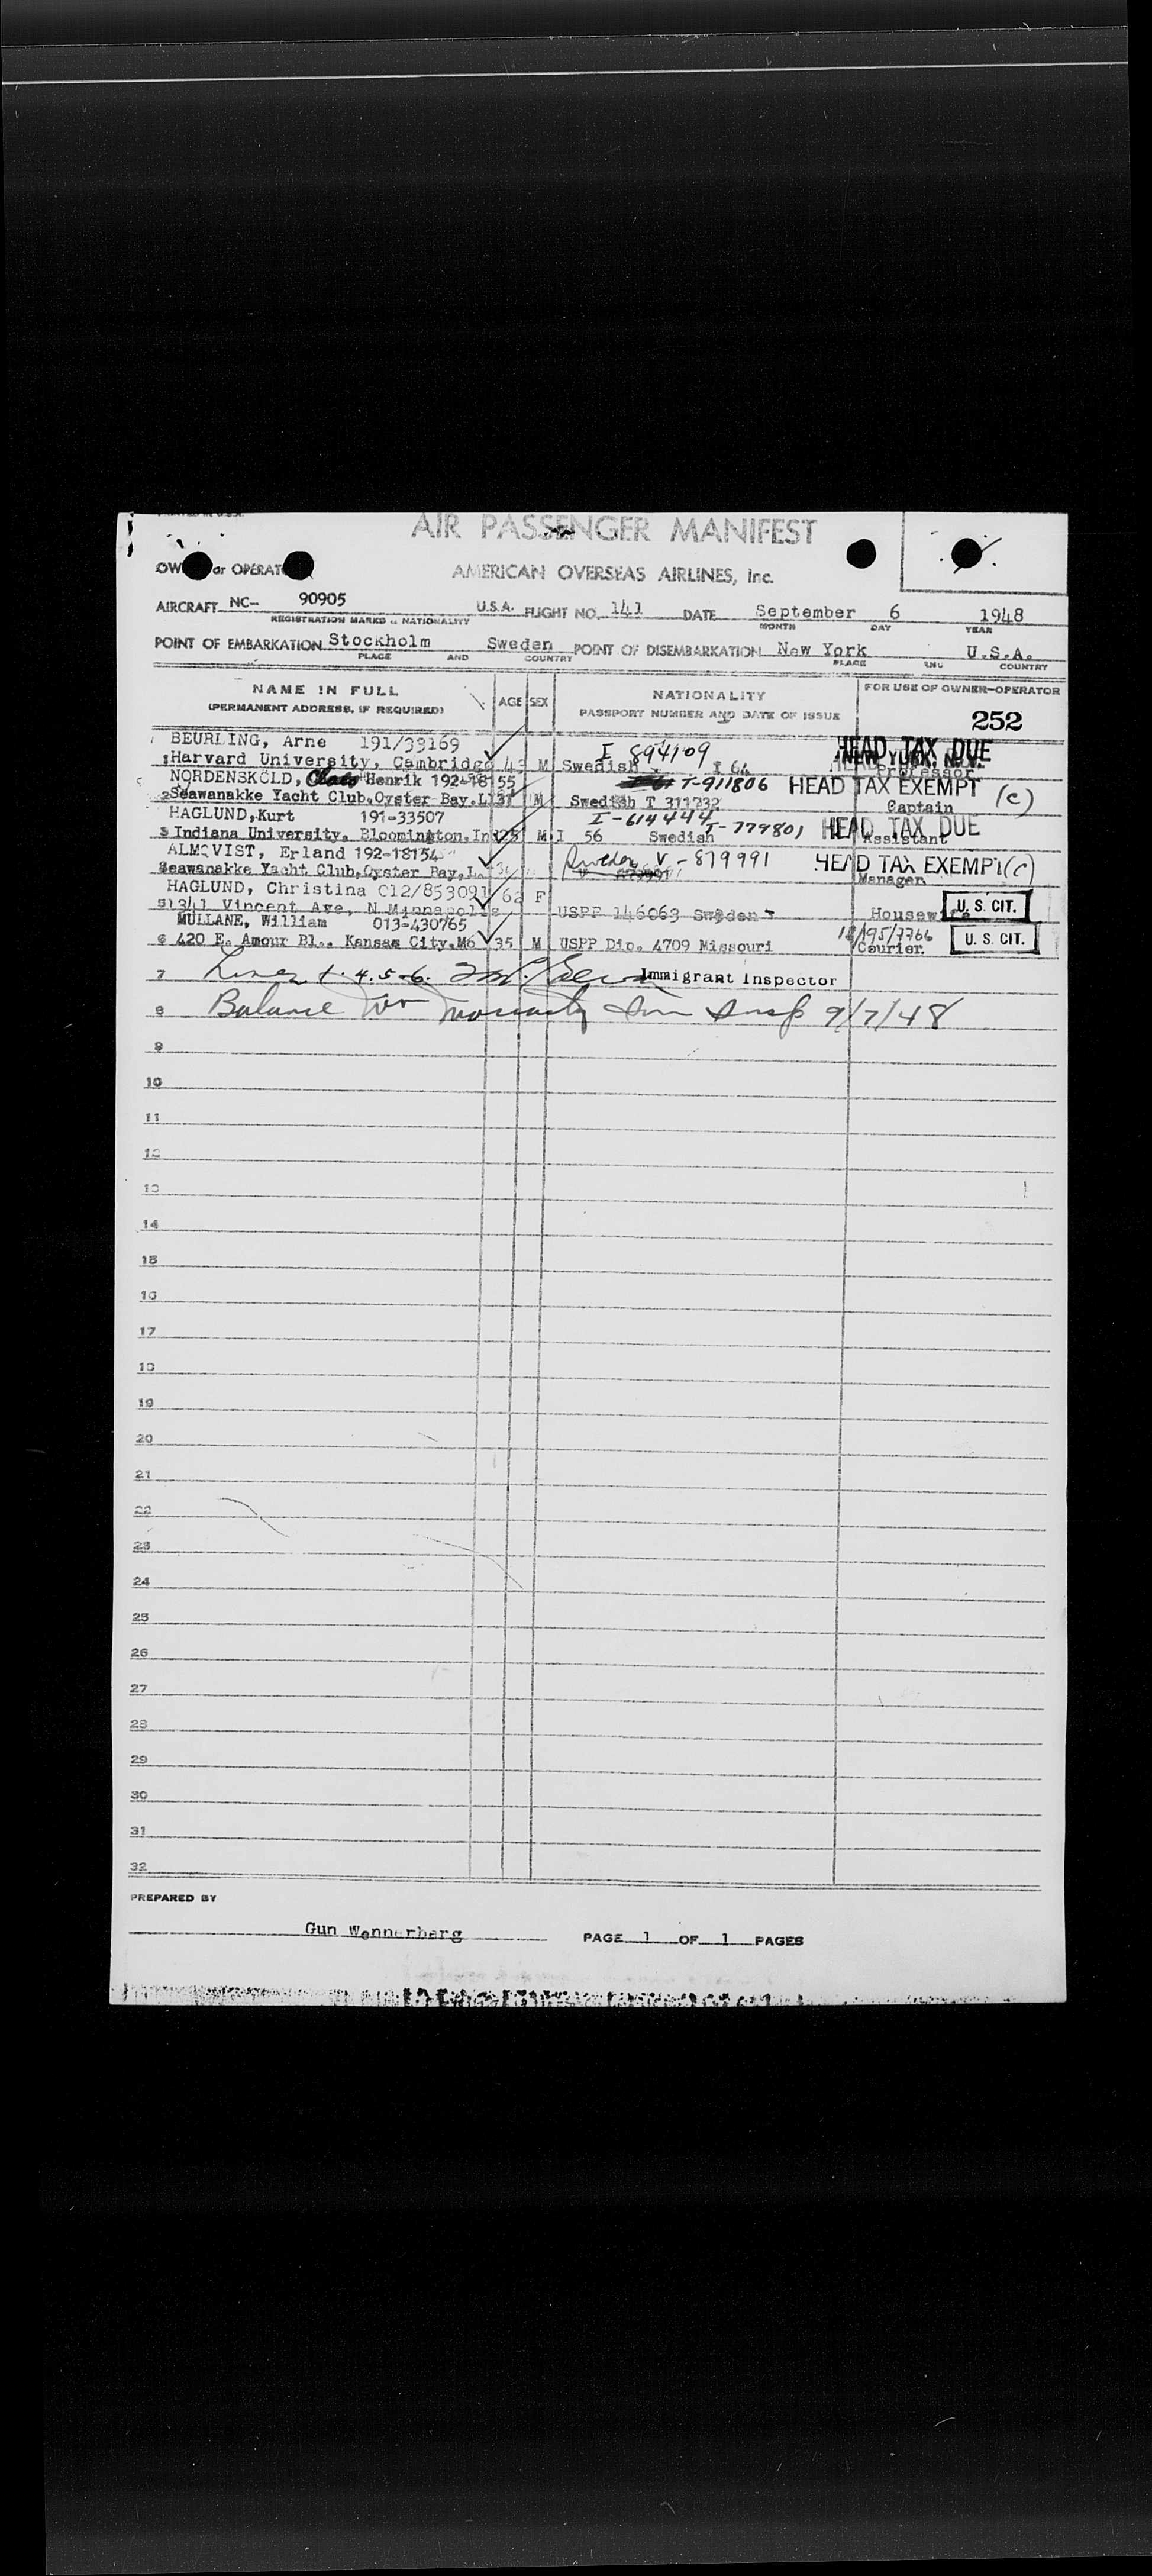 AIR PASSENGER MANIFEST
AMERICAN OVERSEAS AIRLINES, Inc.
AIRCRAFT NC- 90905 U.S.A. FLIGHT NO. 141 DATE September 6 1948
REGISTRATION MARKS & NATIONALITY MONTH DAY YEAR
POINT OF EMBARKATION Stockholm Sweden POINT OF DISEMBARKATION New York U.S.A.
PLACE AND COUNTRY PLACE AND COUNTRY
NAME IN FULL AGE SEX NATIONALITY FOR USE OF OWNER-OPERATOR
(PERMANENT ADDRESS, IF REQUIRED) PASSPORT NUMBER AND DATE OF ISSUE
252
BEURLING, Arne 191/33169 I 894109 HEAD TAX DUE
1 Harvard University, Cambridge 43 M Swedish I 64 Professor
NORDENSKÖLD, Henrik 192-18155 T-911806 HEAD TAX EXEMPT (c)
2 Seawanakke Yacht Club, Oyster Bay, L 31 M Swedish T 311732 Captain
HAGLUND, Kurt 191-33507 I-614444 T-779801 HEAD TAX DUE
3 Indiana University, Bloomington, In 25 M I 56 Swedish Assistant
ALMQVIST, Erland 192-18154 Sweden V-879991 HEAD TAX EXEMPT (c)
Seawanakke Yacht Club, Oyster Bay, L. Manager
HAGLUND, Christina 012/853091 62 F U. S. CIT.
5 1341 Vincent Ave, N Minnapolis USPP 146063 Sweden Housewife
MULLANE, William 013-430765
6 420 E. Amour Bl., Kansas City, Mo 35 M USPP Dip. 4709 Missouri Courier U. S. CIT.
7 Lines 1. 4. 5-6. Immigrant Inspector
8 Balance Imm Insp 9/7/48
9
10
11
12
13
14
15
16
17
18
19
20
21
22
23
24
25
26
27
28
29
30
31
32
PREPARED BY
Gun Wennerberg PAGE 1 OF 1 PAGES